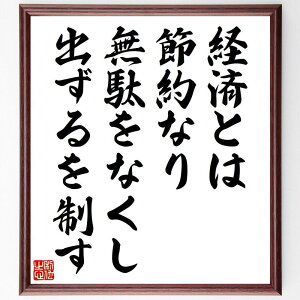 経済とは
節約なり
無駄をなくし
出ずるを制す